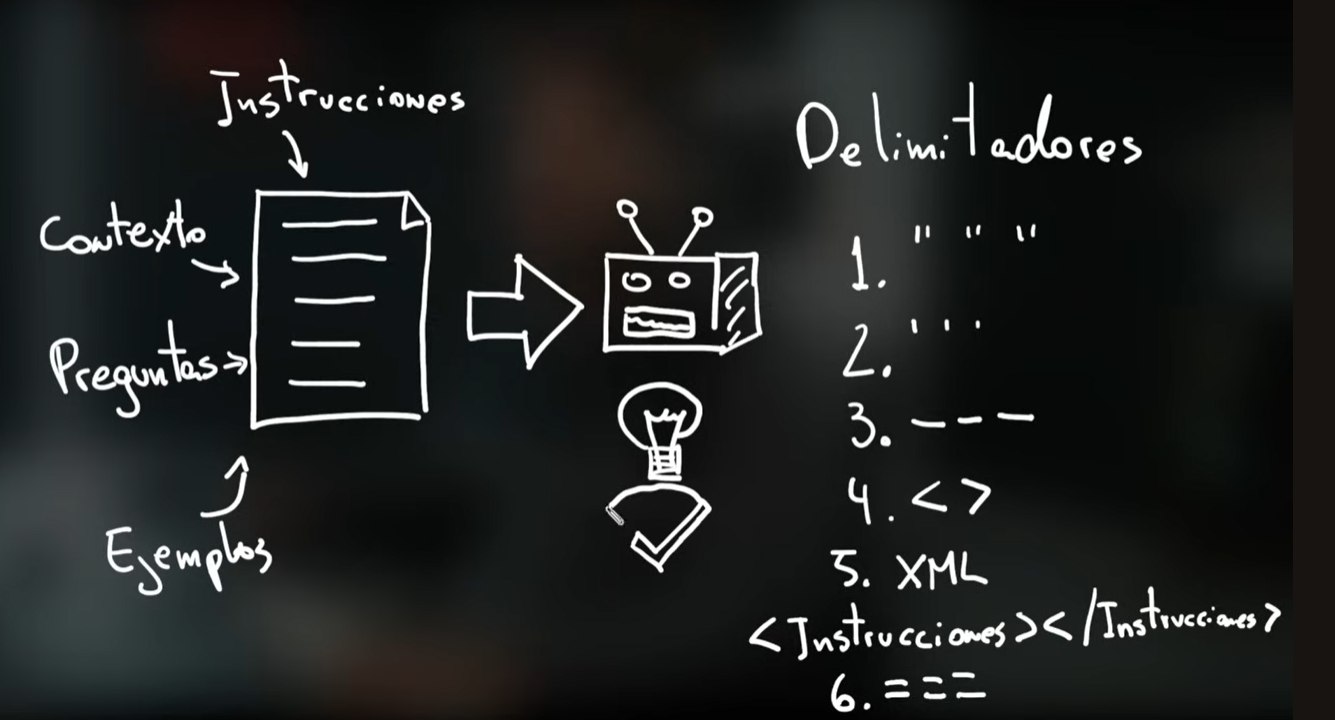 Instrucciones
Contexto
Preguntas
Ejemplos
Delimitadores
1. " " "
2. ' ' '
3. ---
4. < >
5. XML
<Instrucciones></Instrucciones>
6. ===